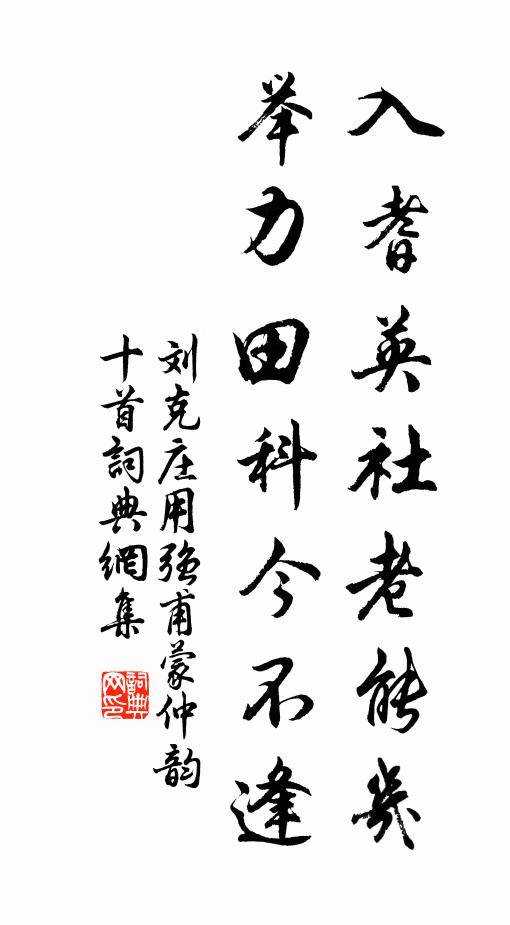 入耆英社老能幾
举力田科今不逢
刘克庄用強甫蒙仲韵
十首詞典網集
詞典
网印